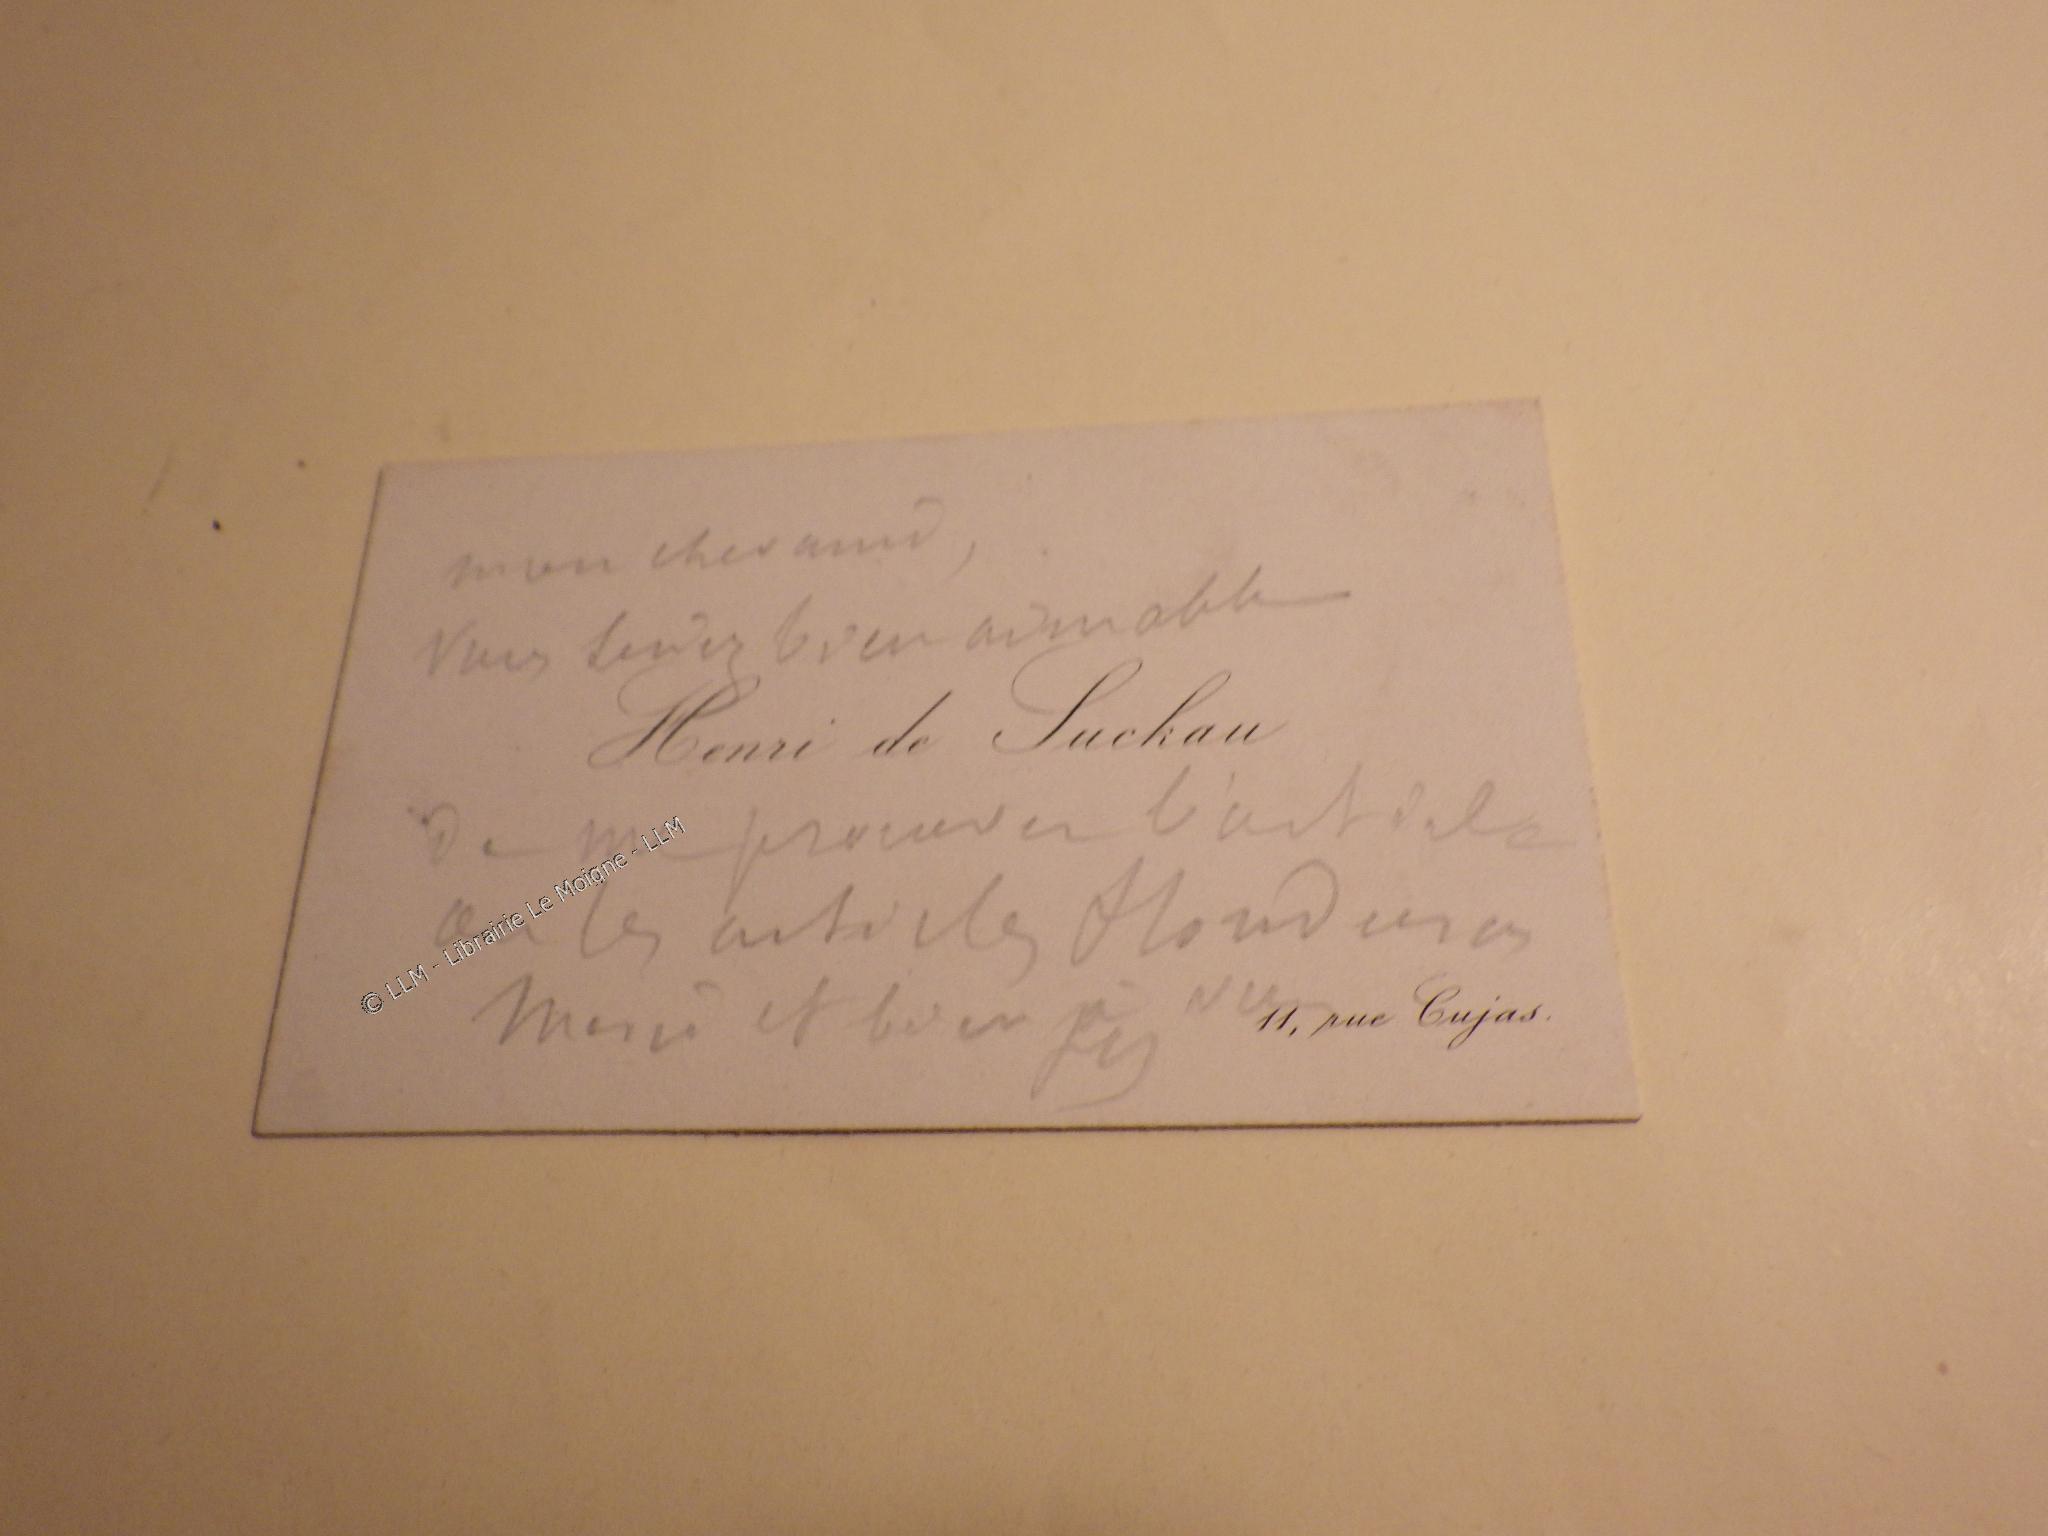 mon cher ami,
Vous seriez bien aimable
Henri de Suckau
De me procurer l'article
ou les articles Honduras
Merci et bien à vous
11, rue Cujas.
© LLM - Librairie Le Moigne - LLM